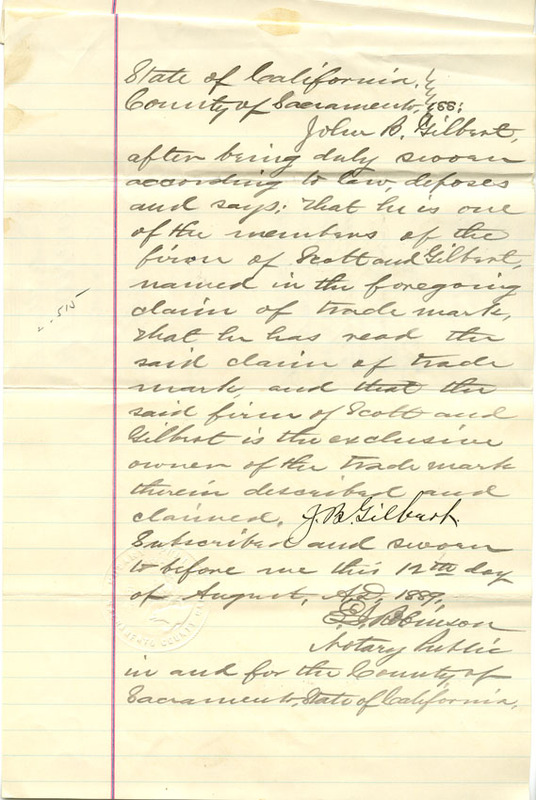 State of California,
County of Sacramento, } ss:
John B. Gilbert,
after being duly sworn
according to law, deposes
and says; that he is one
of the members of the
firm of Scott and Gilbert,
named in the foregoing
claim of trade mark,
that he has read the
said claim of trade
mark, and that the
said firm of Scott and
Gilbert is the exclusive
owner of the trade mark
therein described and
claimed. J. B. Gilbert.
Subscribed and sworn
to before me this 12th day
of August, A.D. 1889,
Robinson
Notary Public
in and for the County of
Sacramento, State of California.